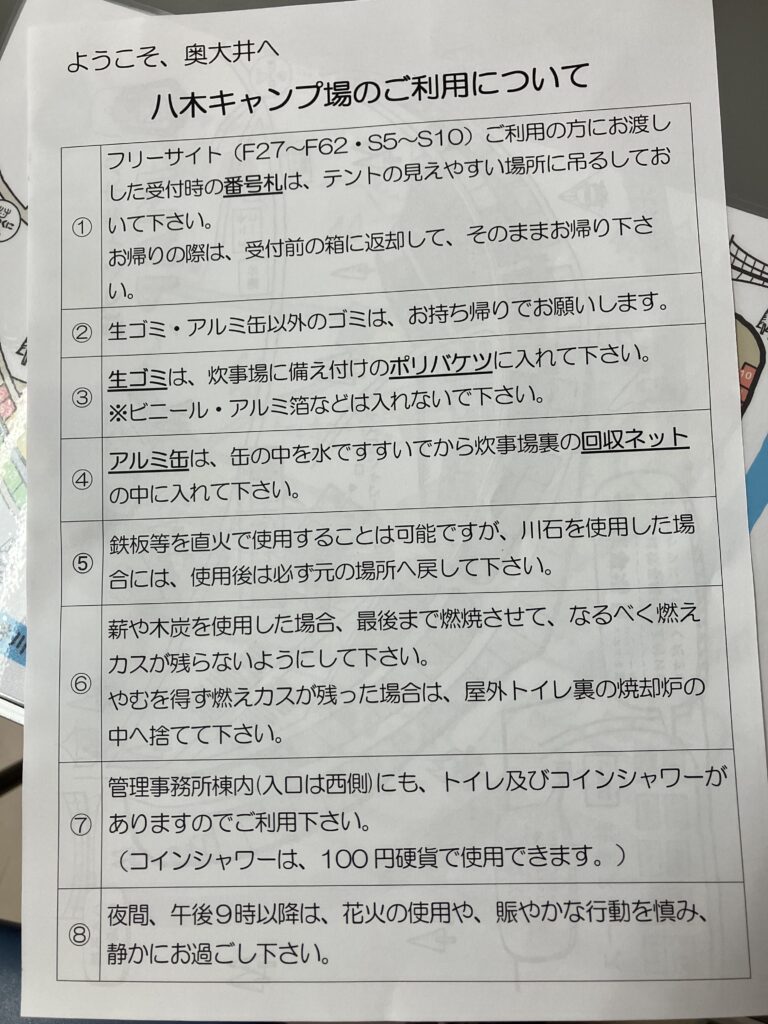 ようこそ、奥大井へ
八木キャンプ場のご利用について
①
フリーサイト（F27～F62・S5～S10）ご利用の方にお渡し
した受付時の番号札は、テントの見えやすい場所に吊るしてお
いて下さい。
お帰りの際は、受付前の箱に返却して、そのままお帰り下さ
い。
②
生ゴミ・アルミ缶以外のゴミは、お持ち帰りでお願いします。
③
生ゴミは、炊事場に備え付けのポリバケツに入れて下さい。
※ビニール・アルミ箔などは入れないで下さい。
④
アルミ缶は、缶の中を水ですすいでから炊事場裏の回収ネット
の中に入れて下さい。
⑤
鉄板等を直火で使用することは可能ですが、川石を使用した場
合には、使用後は必ず元の場所へ戻して下さい。
⑥
薪や木炭を使用した場合、最後まで燃焼させて、なるべく燃え
カスが残らないようにして下さい。
やむを得ず燃えカスが残った場合は、屋外トイレ裏の焼却炉の
中へ捨てて下さい。
⑦
管理事務所棟内(入口は西側)にも、トイレ及びコインシャワーが
ありますのでご利用下さい。
（コインシャワーは、100円硬貨で使用できます。）
⑧
夜間、午後9時以降は、花火の使用や、賑やかな行動を慎み、
静かにお過ごし下さい。
10